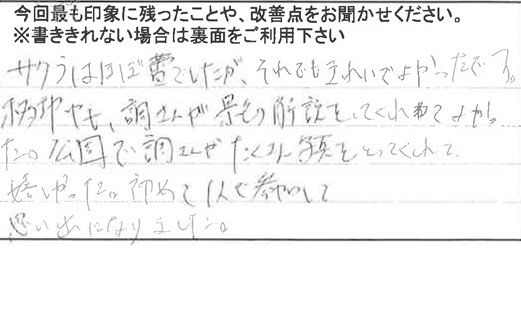 今回最も印象に残ったことや、改善点をお聞かせください。
※書ききれない場合は裏面をご利用下さい
サクラはほぼ蕾でしたが、それでもきれいでよかったです。
移動中も、調さんが景色の解説をしてくれてよかっ
た。公園で調さんがたくさん写真をとってくれて
嬉しかった。初めて1人で参加して
思い出になりました。